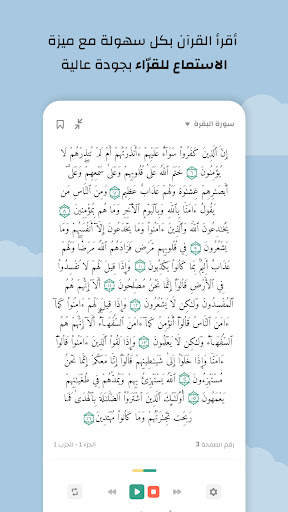 أقرأ القرآن بكل سهولة مع ميزة
الاستماع للقرّاء بجودة عالية
سورة البقرة
إِنَّ ٱلَّذِينَ كَفَرُوا۟ سَوَآءٌ عَلَيْهِمْ ءَأَنذَرْتَهُمْ أَمْ لَمْ تُنذِرْهُمْ لَا
يُؤْمِنُونَ ٦ خَتَمَ ٱللَّهُ عَلَىٰ قُلُوبِهِمْ وَعَلَىٰ سَمْعِهِمْ ۖ وَعَلَىٰٓ
أَبْصَٰرِهِمْ غِشَٰوَةٌ ۖ وَلَهُمْ عَذَابٌ عَظِيمٌ ٧ وَمِنَ ٱلنَّاسِ مَن
يَقُولُ ءَامَنَّا بِٱللَّهِ وَبِٱلْيَوْمِ ٱلْـَٔاخِرِ وَمَا هُم بِمُؤْمِنِينَ ٨
يُخَٰدِعُونَ ٱللَّهَ وَٱلَّذِينَ ءَامَنُوا۟ وَمَا يَخْدَعُونَ إِلَّآ أَنفُسَهُمْ وَمَا
يَشْعُرُونَ ٩ فِى قُلُوبِهِم مَّرَضٌ فَزَادَهُمُ ٱللَّهُ مَرَضًا ۖ وَلَهُمْ
عَذَابٌ أَلِيمٌۢ بِمَا كَانُوا۟ يَكْذِبُونَ ١٠ وَإِذَا قِيلَ لَهُمْ لَا تُفْسِدُوا۟
فِى ٱلْأَرْضِ قَالُوٓا۟ إِنَّمَا نَحْنُ مُصْلِحُونَ ١١ أَلَآ إِنَّهُمْ هُمُ
ٱلْمُفْسِدُونَ وَلَٰكِن لَّا يَشْعُرُونَ ١٢ وَإِذَا قِيلَ لَهُمْ ءَامِنُوا۟ كَمَآ
ءَامَنَ ٱلنَّاسُ قَالُوٓا۟ أَنُؤْمِنُ كَمَآ ءَامَنَ ٱلسُّفَهَآءُ ۗ أَلَآ إِنَّهُمْ هُمُ
ٱلسُّفَهَآءُ وَلَٰكِن لَّا يَعْلَمُونَ ١٣ وَإِذَا لَقُوا۟ ٱلَّذِينَ ءَامَنُوا۟ قَالُوٓا۟
ءَامَنَّا وَإِذَا خَلَوْا۟ إِلَىٰ شَيَٰطِينِهِمْ قَالُوٓا۟ إِنَّا مَعَكُمْ إِنَّمَا نَحْنُ
مُسْتَهْزِءُونَ ١٤ ٱللَّهُ يَسْتَهْزِئُ بِهِمْ وَيَمُدُّهُمْ فِى طُغْيَٰنِهِمْ
يَعْمَهُونَ ١٥ أُو۟لَٰٓئِكَ ٱلَّذِينَ ٱشْتَرَوُا۟ ٱلضَّلَٰلَةَ بِٱلْهُدَىٰ فَمَا
رَبِحَت تِّجَٰرَتُهُمْ وَمَا كَانُوا۟ مُهْتَدِينَ ١٦
رقم الصفحة 3
الجزء 1 - الحزب 1